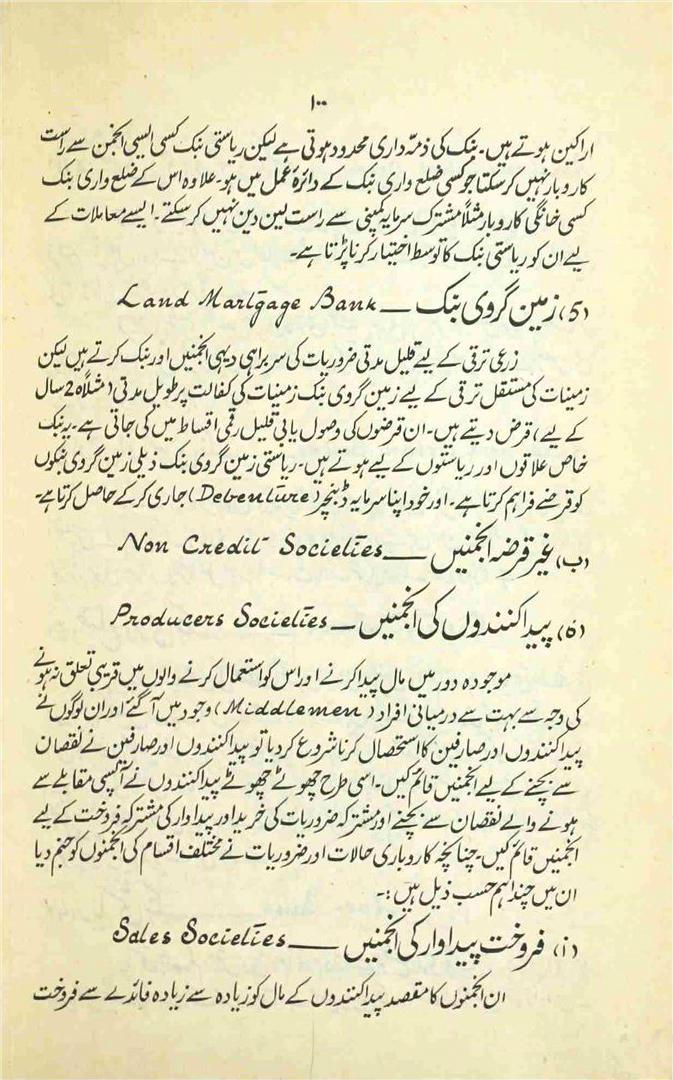 ۱۰۰
اراکین ہوتے ہیں۔ بنک کی ذمہ داری محدود ہوتی ہے لیکن ریاستی بنک کسی ایسی انجمن سے راست
کاروبار نہیں کر سکتا جو کسی ضلع واری بنک کے دائرہ عمل میں ہو۔ علاوہ اس کے ضلع واری بنک
کسی خانگی کاروبار مثلاً مشترک سرمایہ کمپنی سے راست لین دین نہیں کر سکتے۔ ایسے معاملات کے
لیے ان کو ریاستی بنک کا توسط اختیار کرنا پڑتا ہے۔
(5) زمین گروی بنک ـــ Land Martgage Bank
زرعی ترقی کے لیے قلیل مدتی ضروریات کی سربراہی دیہی انجمنیں اور بنک کرتے ہیں لیکن
زمینات کی مستقل ترقی کے لیے زمین گروی بنک زمینات کی کفالت پر طویل مدتی (مثلاً 20 سال
کے لیے) قرض دیتے ہیں۔ ان قرضوں کی وصول یابی قلیل رقمی اقساط میں کی جاتی ہے۔ یہ بنک
خاص علاقوں اور ریاستوں کے لیے ہوتے ہیں۔ ریاستی زمین گروی بنک ذیلی زمین گروی بنکوں
کو قرضے فراہم کرتا ہے۔ اور خود اپنا سرمایہ ڈبنچر (Debenture) جاری کر کے حاصل کرتا ہے۔
(ب) غیر قرضہ انجمنیں ـــ Non Credit Societies
(۵) پیدا کنندوں کی انجمنیں ـــ Producers Societies
موجودہ دور میں مال پیدا کرنے اور اس کو استعمال کرنے والوں میں قریبی تعلق نہ ہونے
کی وجہ سے بہت سے درمیانی افراد (Middlemen) وجود میں آگئے اور ان لوگوں نے
پیدا کنندوں اور صارفین کا استحصال کرنا شروع کر دیا تو پیدا کنندوں اور صارفین نے نقصان
سے بچنے کے لیے انجمنیں قائم کیں۔ اسی طرح چھوٹے چھوٹے پیدا کنندوں نے آپسی مقابلے سے
ہونے والے نقصان سے بچنے اور مشترکہ ضروریات کی خرید اور پیداوار کی مشترکہ فروخت کے لیے
انجمنیں قائم کیں۔ چنانچہ کاروباری حالات اور ضروریات نے مختلف اقسام کی انجمنوں کو جنم دیا
ان میں چند اہم حسب ذیل ہیں :۔
(i) فروخت پیداوار کی انجمنیں ـــ Sales Societies
ان انجمنوں کا مقصد پیدا کنندوں کے مال کو زیادہ سے زیادہ فائدے سے فروخت